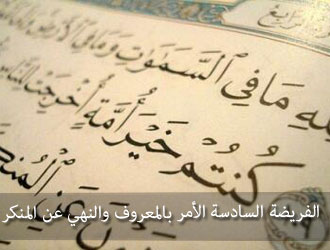 مَا فِي السَّمَٰوَٰتِ وَمَا فِي الْأَرْضِ
كُنتُمْ خَيْرَ أُمَّةٍ أُخْرِجَتْ لِلنَّاسِ
عَنِ
الفريضة السادسة الأمر بالمعروف والنهي عن المنكر